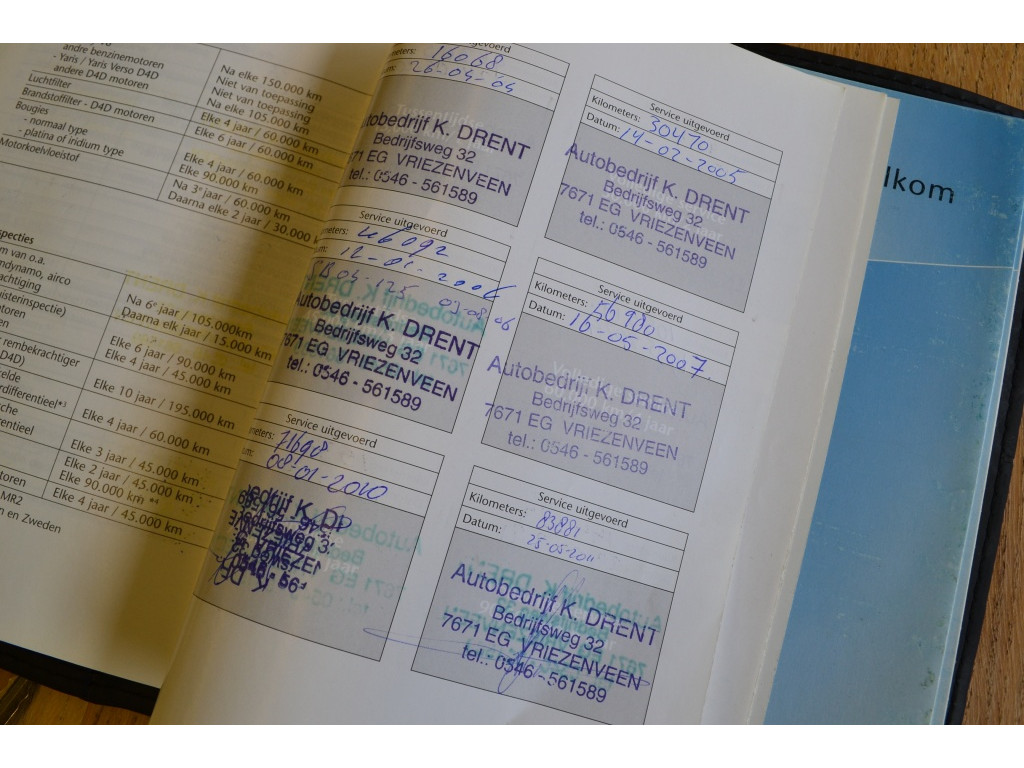 andre benzinemotoren
- Yaris / Yaris Verso D4D
andere D4D motoren
Luchtfilter
Brandstoffilter - D4D motoren
Bougies
- normaal type
- platina of iridium type
Motorkoelvloeistof
Na elke 150.000 km
Niet van toepassing
Niet van toepassing
Na elke 105.000 km
Elke 4 jaar / 60.000 km
Elke 6 jaar / 60.000 km
Elke 4 jaar / 60.000 km
Elke 90.000 km
Na 3e jaar / 60.000 km
Daarna elke 2 jaar / 30.000 k
specties
m van o.a.
dynamo, airco
achtiging
isterinspectie)
otoren
en
r rembekrachtiger
D4D)
relde
rdifferentieel*)
sche
erentieel
otoren
MR2
en en Zweden
Na 6e jaar / 105.000km
Daarna elk jaar / 15.000 km
Elke 6 jaar / 90.000 km
Elke 4 jaar / 45.000 km
Elke 10 jaar / 195.000 km
Elke 4 jaar / 60.000 km
Elke 3 jaar / 45.000 km
Elke 2 jaar / 45.000 km
Elke 90.000 km **
Elke 4 jaar / 45.000 km
uitgevoerd
ometers: 16068
26-04-04
tobedrijf K. DRENT
Bedrijfsweg 32
7671 EG VRIEZENVEEN
tel.: 0546 - 561589
Service uitgevoerd
Kilometers: 30470
Datum: 14-02-2005
Autobedrijf K. DRENT
Bedrijfsweg 32
7671 EG VRIEZENVEEN
tel.: 0546 - 561589
Service uitgevoerd
ometers: 46092
um: 12-01-2006
Autobedrijf K. DRENT
Bedrijfsweg 32
7671 EG VRIEZENVEEN
tel.: 0546 - 561589
Service uitgevoerd
Kilometers: 56980
Datum: 16-05-2007.
Autobedrijf K. DRENT
Bedrijfsweg 32
7671 EG VRIEZENVEEN
tel.: 0546 - 561589
Service uitgevoerd
meters: 71698
um: 08-01-2010
Service uitgevoerd
Kilometers: 83881
Datum: 25-05-2011
Autobedrijf K. DRENT
Bedrijfsweg 32
7671 EG VRIEZENVEEN
tel.: 0546 - 561589
lkom